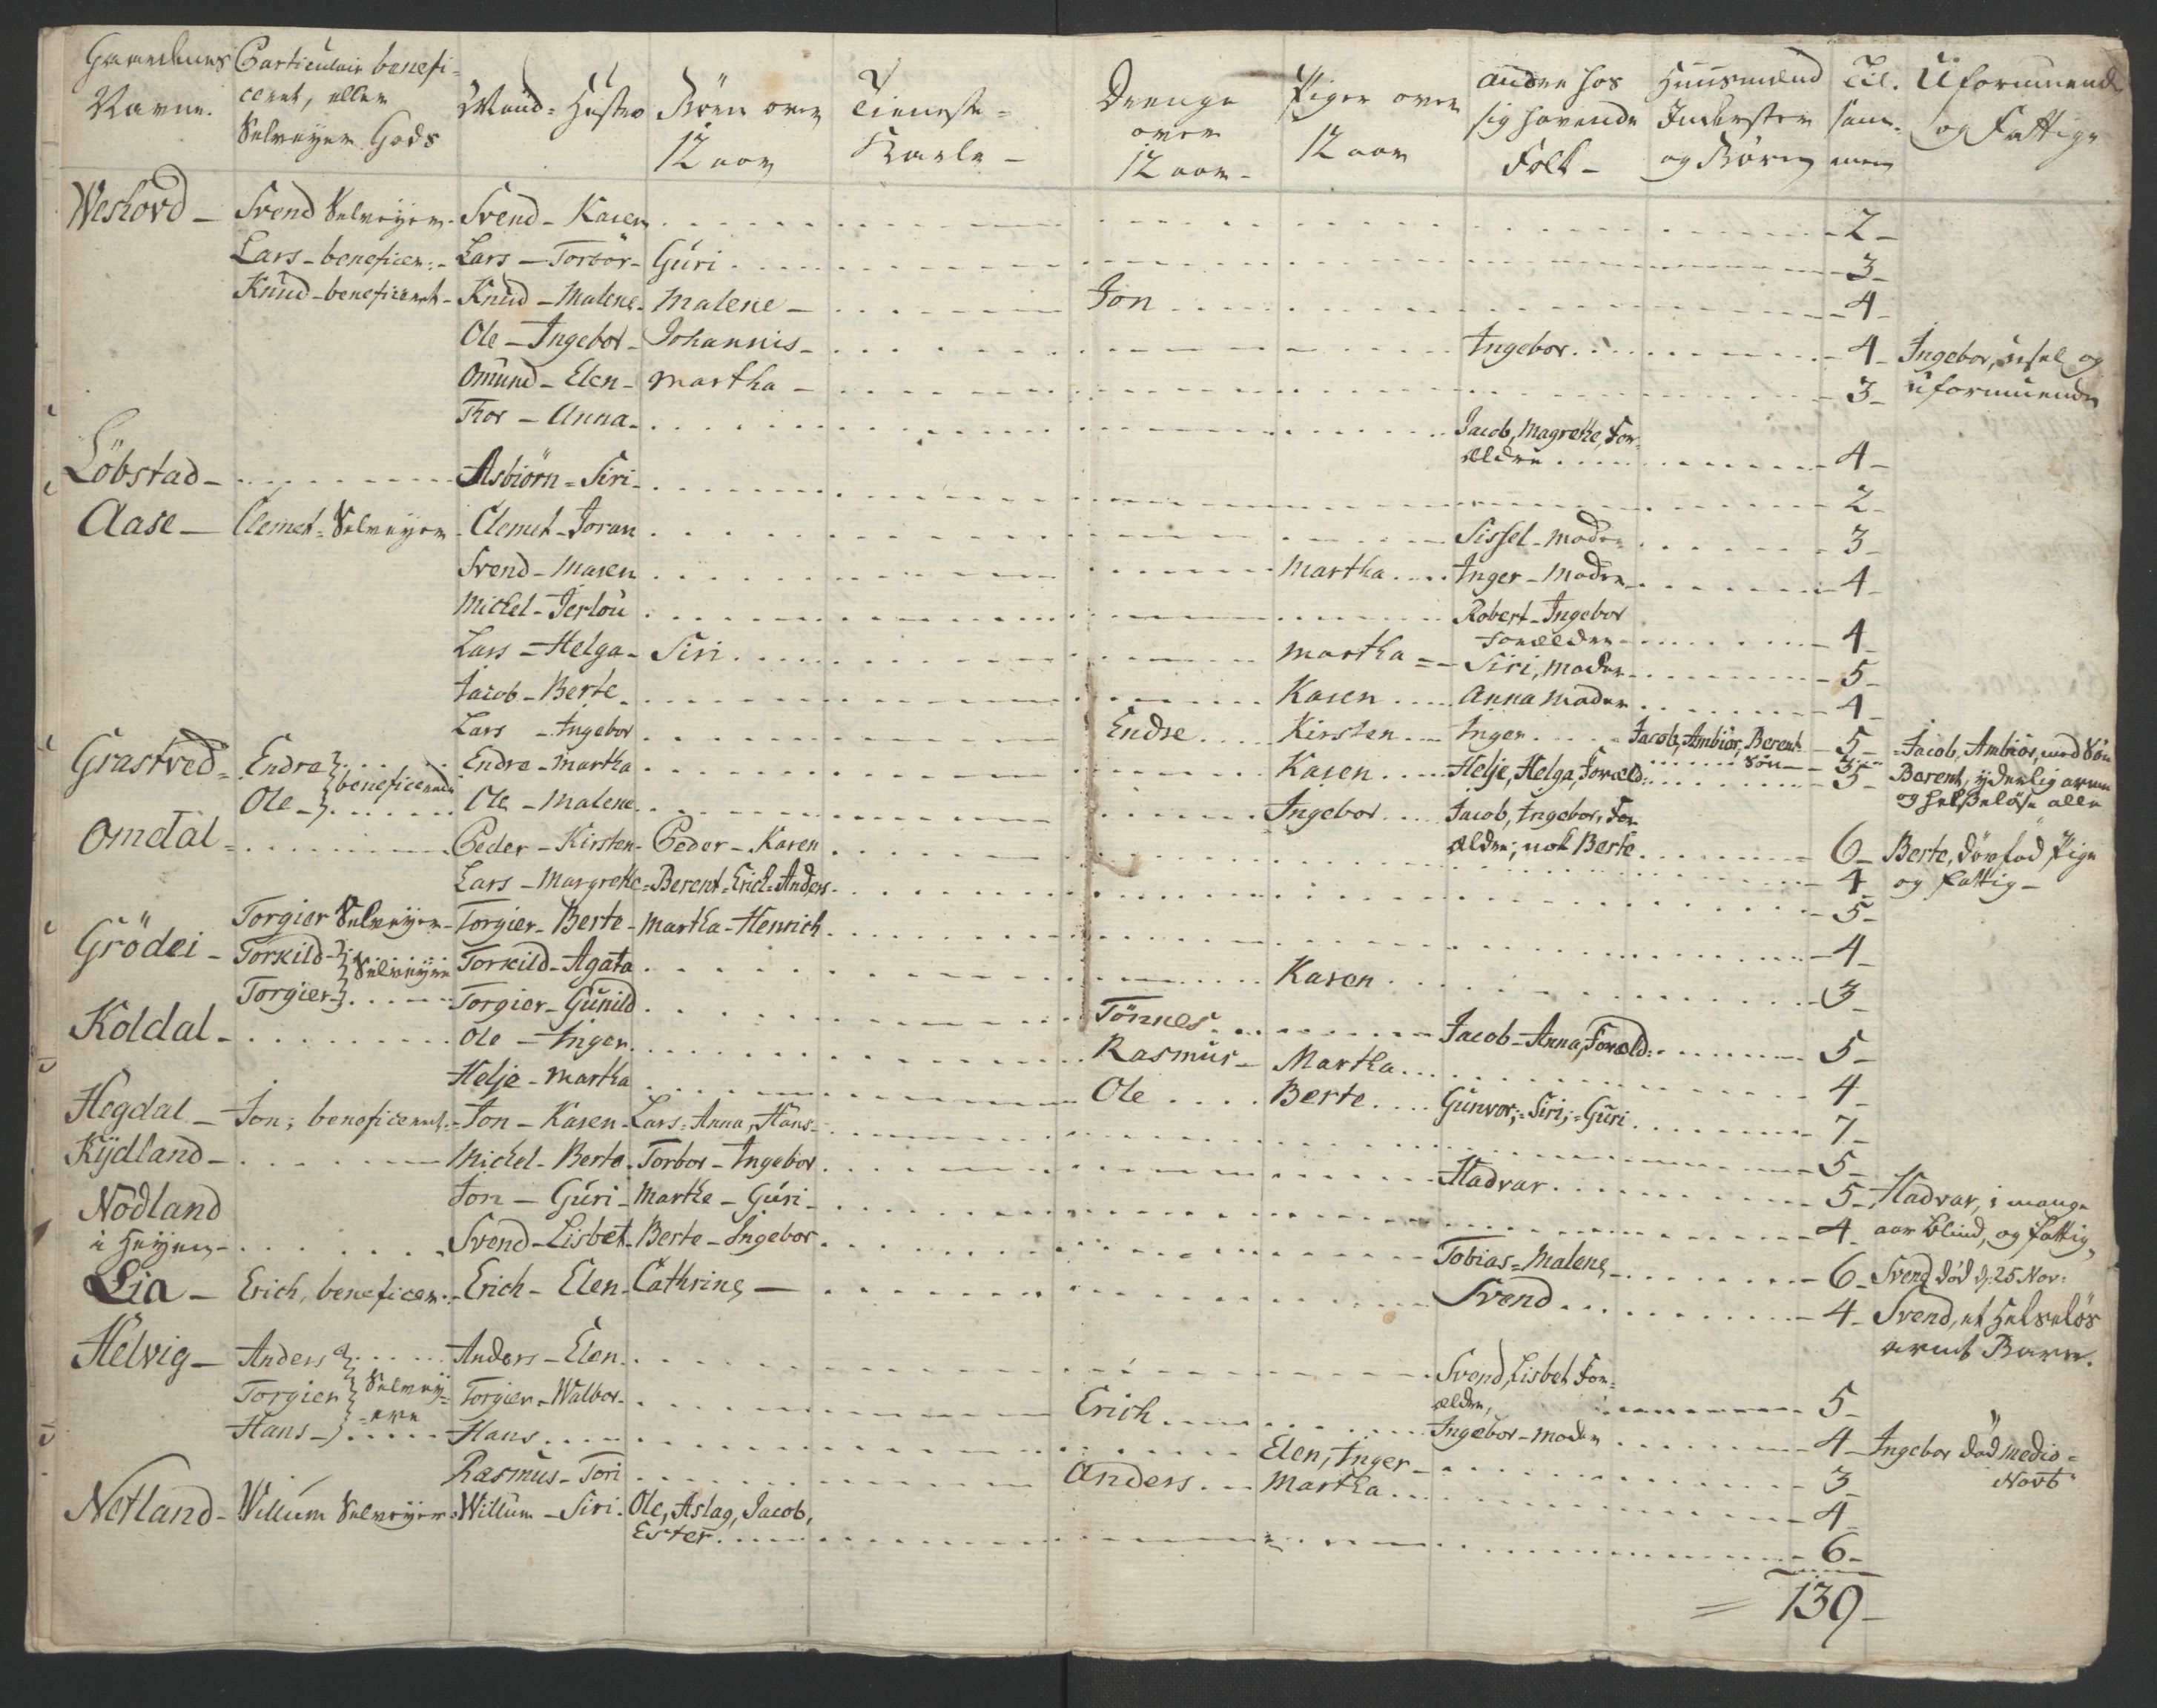 Gaardenes Navne. | Particulair beneficeret, eller Selveyer Gods | Mand = Hustro | Börn over 12 aar | Tieneste = Karle - | Drenge over 12 aar - | Piger over 12 aar | Andre hos sig havende Folk - | Huusmænd Inderster og Börn | Til sammen | Uformuende og Fattige
Weshovd - Svend Selveyer - Svend - Karen - 2 -
Lars - beneficer: - Lars - Torbör - Güri - 3 -
Knüd - beneficeret - Knüd - Malene - Malene - Jon - 4 -
Ole - Ingebor - Johannis - Ingebor - 4 - Ingebor, üsel og
Omünd - Elen - Martha - 3 - üformüende
Thor - Anna - Jacob, Magrethe, For-
ældre - 4 -
Löbstad - Asbiörn = Siri - 2 -
Aase - Clemet = Selveyer - Clemet - Joran - Sissel - Moder - 3 -
Svend - Maren - Martha - Inger - Moder - 4 -
Michel - Jerlou - Robert - Ingebor
Forældre - 4 -
Lars - Helga - Siri - Martha - Siri, Moder - 5 -
Jacob - Berte - Karen - Anna Moder - 4 -
Lars - Ingebor - Endre - Kirsten - Inger - Jacob, Ambiör, Berent Sön - 5 - Jacob, Ambiör, med Sön
Grastved - Endre } beneficerede Endre - Martha - Karen - Helje, Helga, Foræld: - 5 - Berent, yderlig arme
og helseløse alle
Ole - } Ole - Malene - Ingebor - Jacob, Ingebor, For-
ældre; nok Berte - 6 - Berte, Pige
Omdal - Peder - Kirsten - Peder - Karen - 4 - og fattig -
Lars - Margrethe = Berent = Erich = Anders - 5 -
Torgier Selveyer - Torgier - Berte - Martha - Henrich - 4 -
Grödei - Torkild - } Selveyere Torkild - Agata - Karen - 3 -
Torgier - } Torgier - Günild - Tönnes - Jacob - Anna, Foræld: - 5 -
Koldal - Ole - Inger - Rasmüs - Martha - 4 -
Helje - Martha - Ole - Berte - Günvor; = Siri; = Güri - 7 -
Hegdal - Jon; beneficeret - Jon - Karen - Lars = Anna, Hans - 5 -
Kÿdland - Michel - Berte - Torbor - Ingebor - Hadvar - 5 - Hadvar, i mange
Nodland
i Heyen - Jon - Güri - Marthe - Güri - 4 - aar blind, og fattig,
Svend - Lisbet - Berte - Ingebor - Tobias = Malene - 6 - Svend död d: 25 Nov:
Lia - Erich, beneficer: - Erich - Elen - Cathrine - Svend - 4 - Svend, et helseløs
armt Barn.
Helvig - Anders } Anders - Elen - Svend, Lisbet For-
ældre, - 5 -
Torgier } Selvey=ere Torgier - Walbor - Erich - Ingebor - Moder - 4 - Ingebor död medio =
Novb
Hans - } Hans - Elen, Inger - 3 -
Rasmüs - Tori - Anders - Martha - 4 -
Netland - Willüm Selveyer - Willüm - Siri - Ole, Aslag, Jacob,
Ester - 6 -
= 139 -